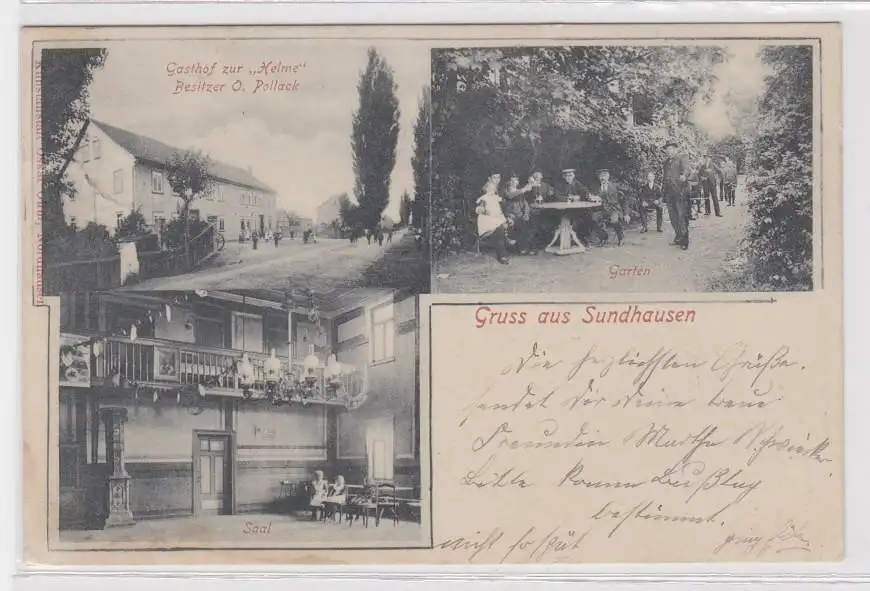 Gasthof zur „Helme"
Besitzer O. Pollack
Garten
Saal
Gruss aus Sundhausen
Die herzlichsten Grüße
sendet Dir Deine treue
Freundin Martha
Bitte komm Bußtag
bestimmt.
nicht so spät